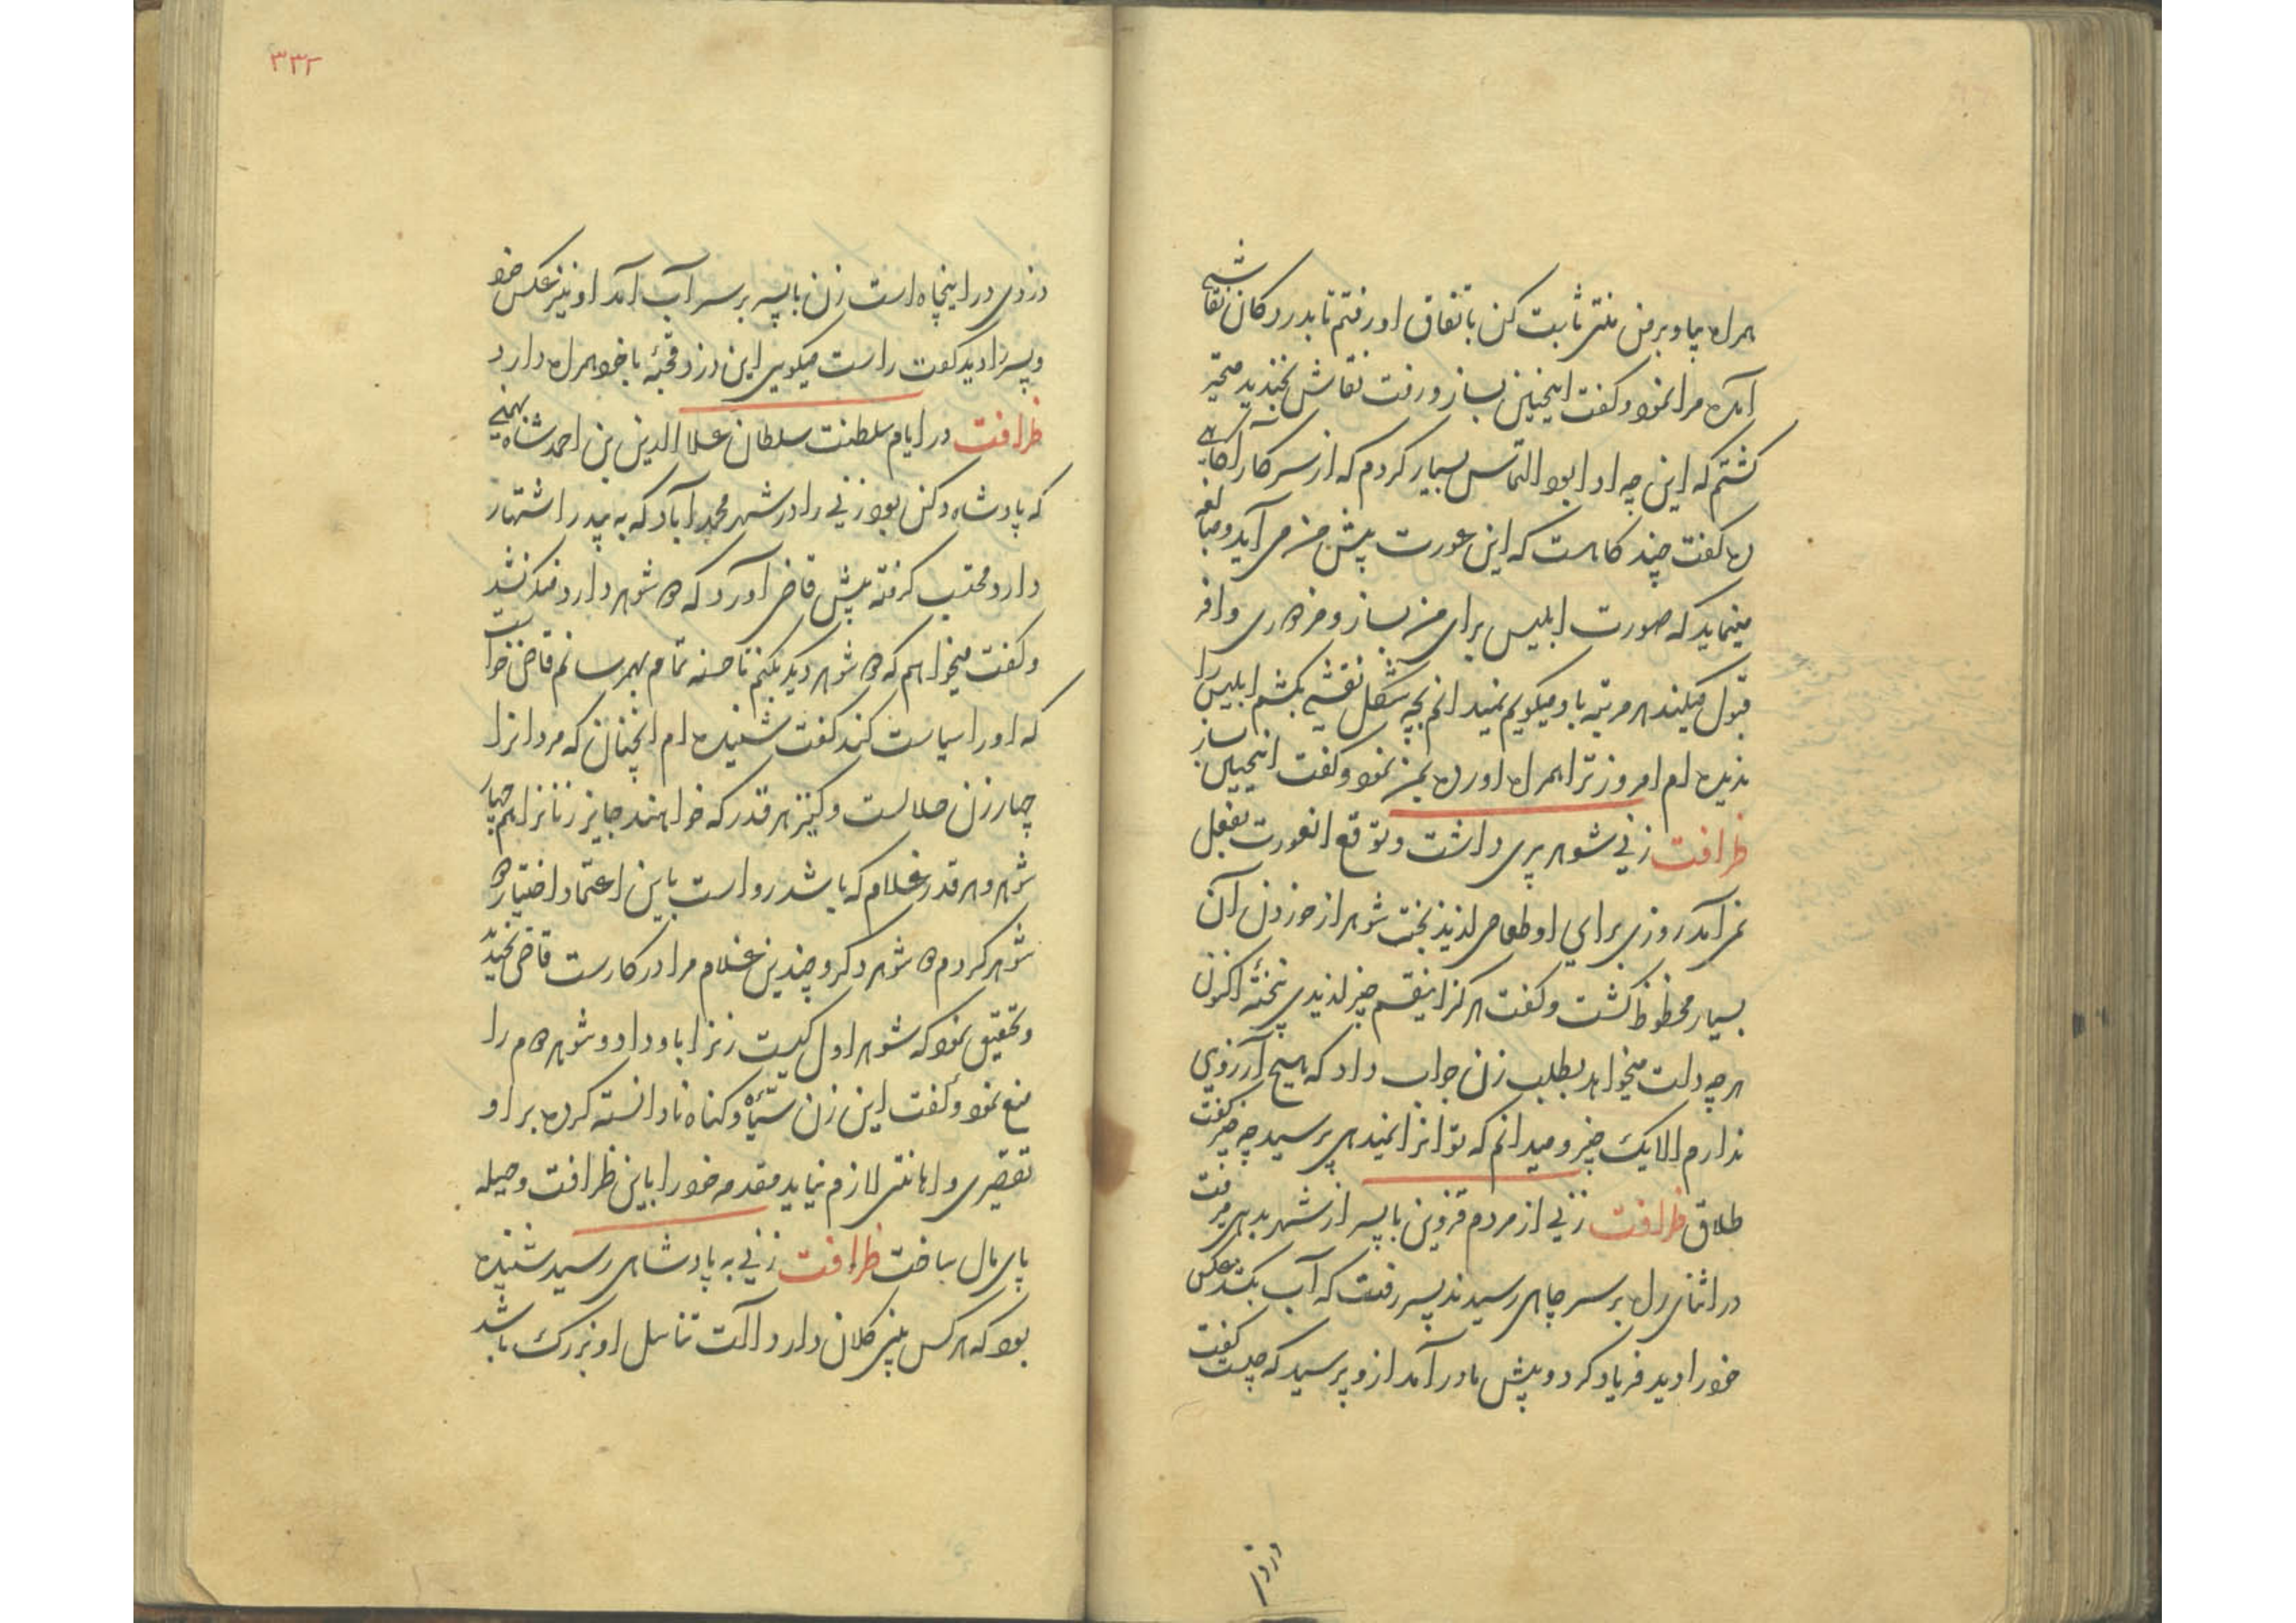 همراه بیا و بر من منتی ثابت کن باتفاق او رفتم تا بدر دکان نقاشی
آمده مرا نمود و کفت اینچنین بساز و رفت نقاش بخندید متحیر
کشتم که این چه ادا بود التماس بسیار کردم که از سر کار آکاهی
ده کفت چند کاهست که این عورت پیش من می آید و مبالغه
مینماید که صورت ابلیس برای من بساز و مزدوری وافر
قبول میکند هر مرتبه باو میکویم نمیدانم بچه شکل نقشی بکشم ابلیس را
ندیده ام امروز ترا همراه اورده بمن نمود و کفت اینچنین ساز
ظرافت زنی شوهر پیری داشت و توقع انعورت بفعل
نمی آمد روزی برای او طعامی لذیذ پخت شوهر از خوردن آن
بسیار محظوظ کشت و کفت هرکز اینقسم چیز لذیذی نپختۀ اکنون
هر چه دلت میخواهد بطلب زن جواب داد که هیچ آرزوی
ندارم الا یک چیز و میدانم که تو انرا نمیدهی پرسید چه چیز کفت
طلاق ظرافت زنی از مردم قزوین با پسر از شهر بدهی میرفت
در اثنای راه بر سر چاهی رسیدند پسر رفت که آب بکشد عکس
خود را دید فریاد کرد و پیش مادر آمد ازو پرسید که چیست کفت
۳۳۲
دزدی در اینچاه است زن با پسر بر سر آب آمد او نیز عکس خود
و پسر را دید کفت راست میکویی این دزد قحبۀ با خود همراه دارد
ظرافت در ایام سلطنت سلطان علاالدین بن احمد شاه بهمنی
که پادشاه دکن بود زنی را در شهر محمدآباد که به بیدر اشتهار
دارد محتسب کرفته پیش قاضی آورد که دو شوهر دارد منکر نشد
و کفت میخواهم که دو شوهر دیکر بکنم تا حسنه تمام بهم رسانم قاضی خواست
که او را سیاست کند کفت شنیده ام انچنان که مردانرا
چهار زن حلالست و کنیز هر قدر که خواهند جایز زنانرا هم چهار
شوهر و هر قدر غلام که باشد رواست باین اعتماد اختیار دو
شوهر کردم دو شوهر دکر و چندین غلام مرا در کارست قاضی بخندید
و تحقیق نمود که شوهر اول کیست زنرا باو داد و شوهر دوم را
منع نمود و کفت این زن و کناه نادانسته کرده بر او
تقصیری و اهانتی لازم نیاید مقدمه خود را باین ظرافت و حیله
پای مال ساخت ظرافت زنی به پادشاهی رسید شنیده
بود که هر کس بینی کلان دارد آلت تناسل او بزرک باشد